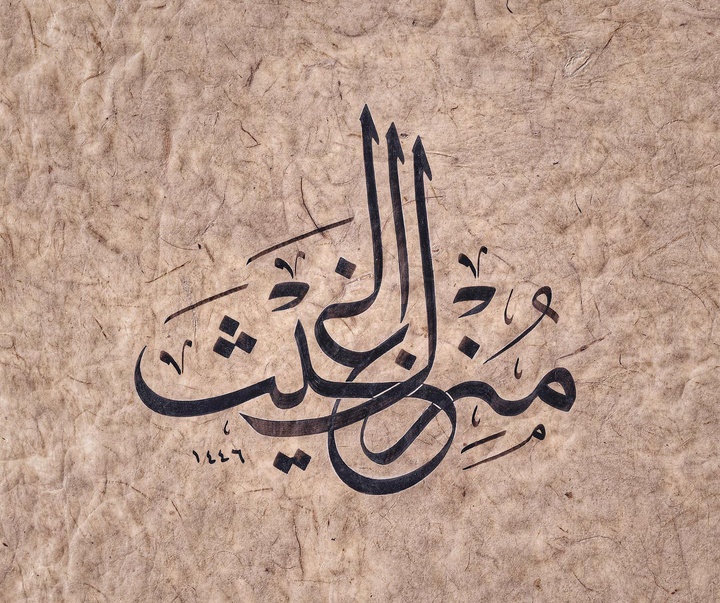 مُنزِل الغيث
١٤٤٦